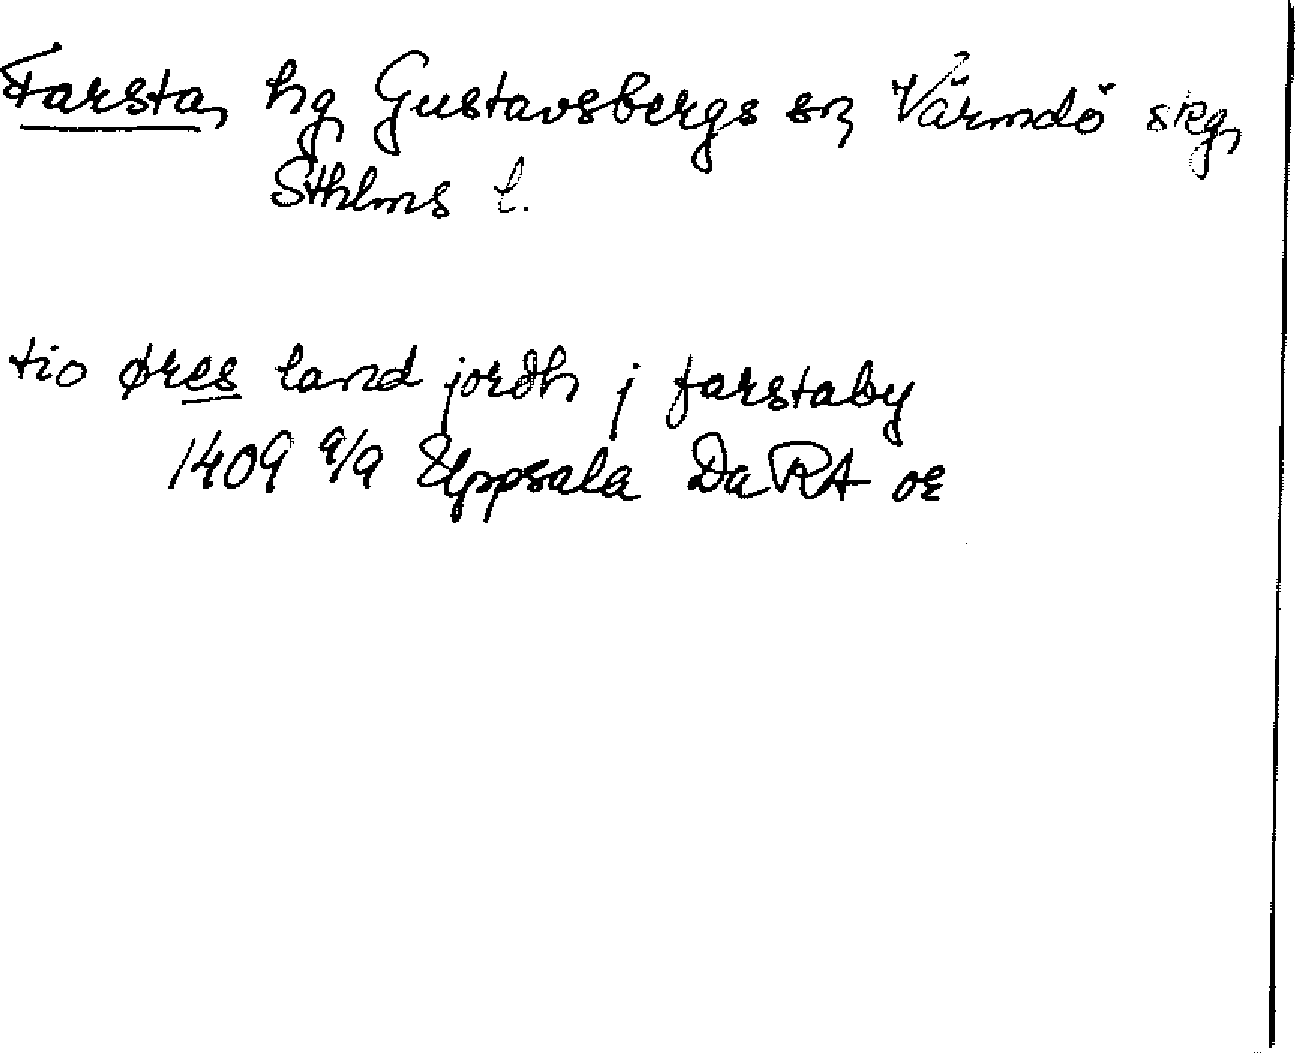 Farsta, hg, Gustavsbergs sn, Värmdö skg,
Sthlms l.
tio øres land jordh j farstaby
1409 9/9 Uppsala Da RA or